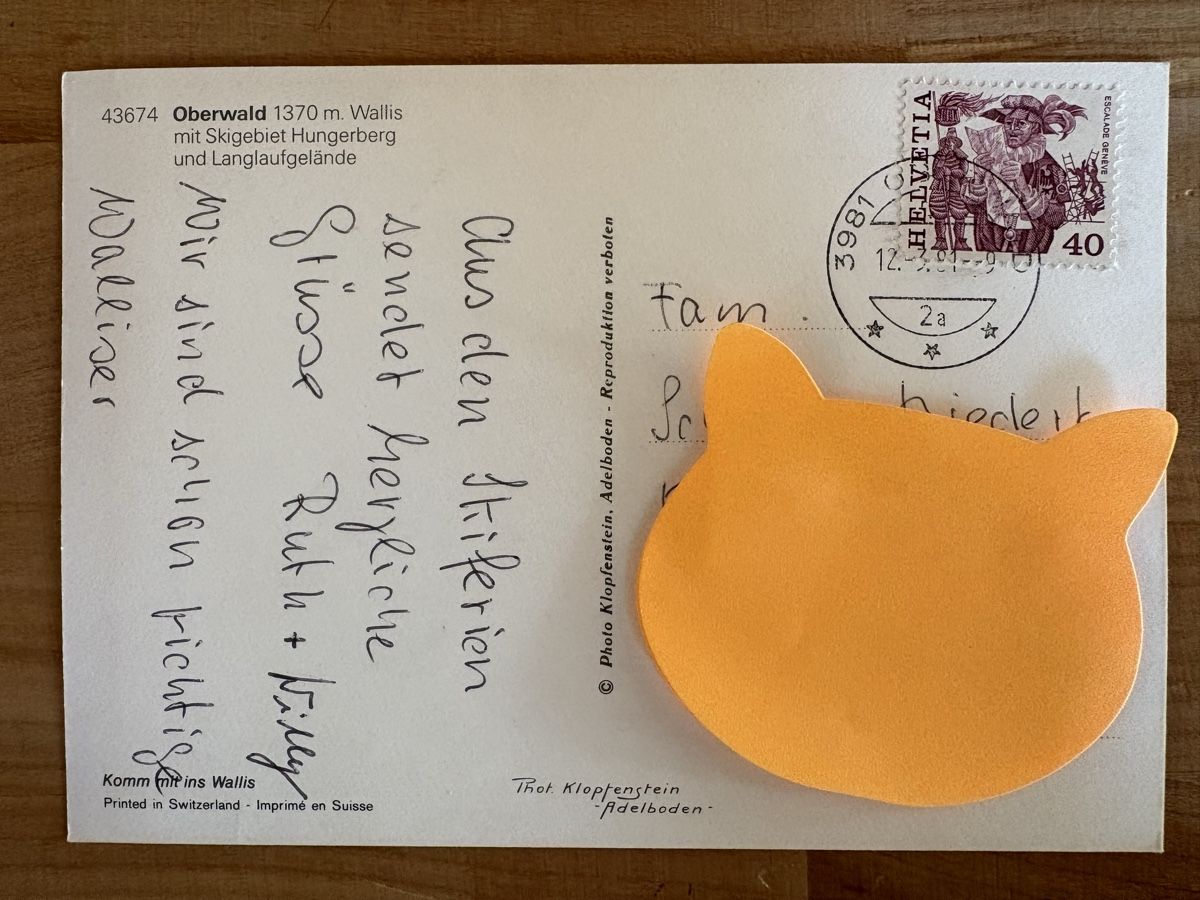 43674 Oberwald 1370 m. Wallis
mit Skigebiet Hungerberg
und Langlaufgelände
Aus den Skiferien
sendet herzliche
Grüsse Ruth + Willy
Wir sind schon richtige
Walliser
Komm mit ins Wallis
Printed in Switzerland - Imprimé en Suisse
© Photo Klopfenstein, Adelboden - Reproduktion verboten
Phot. Klopfenstein
-Adelboden-
HELVETIA
ESCALADE GENÈVE
40
3981
12.-3.81--9
2a
Fam.